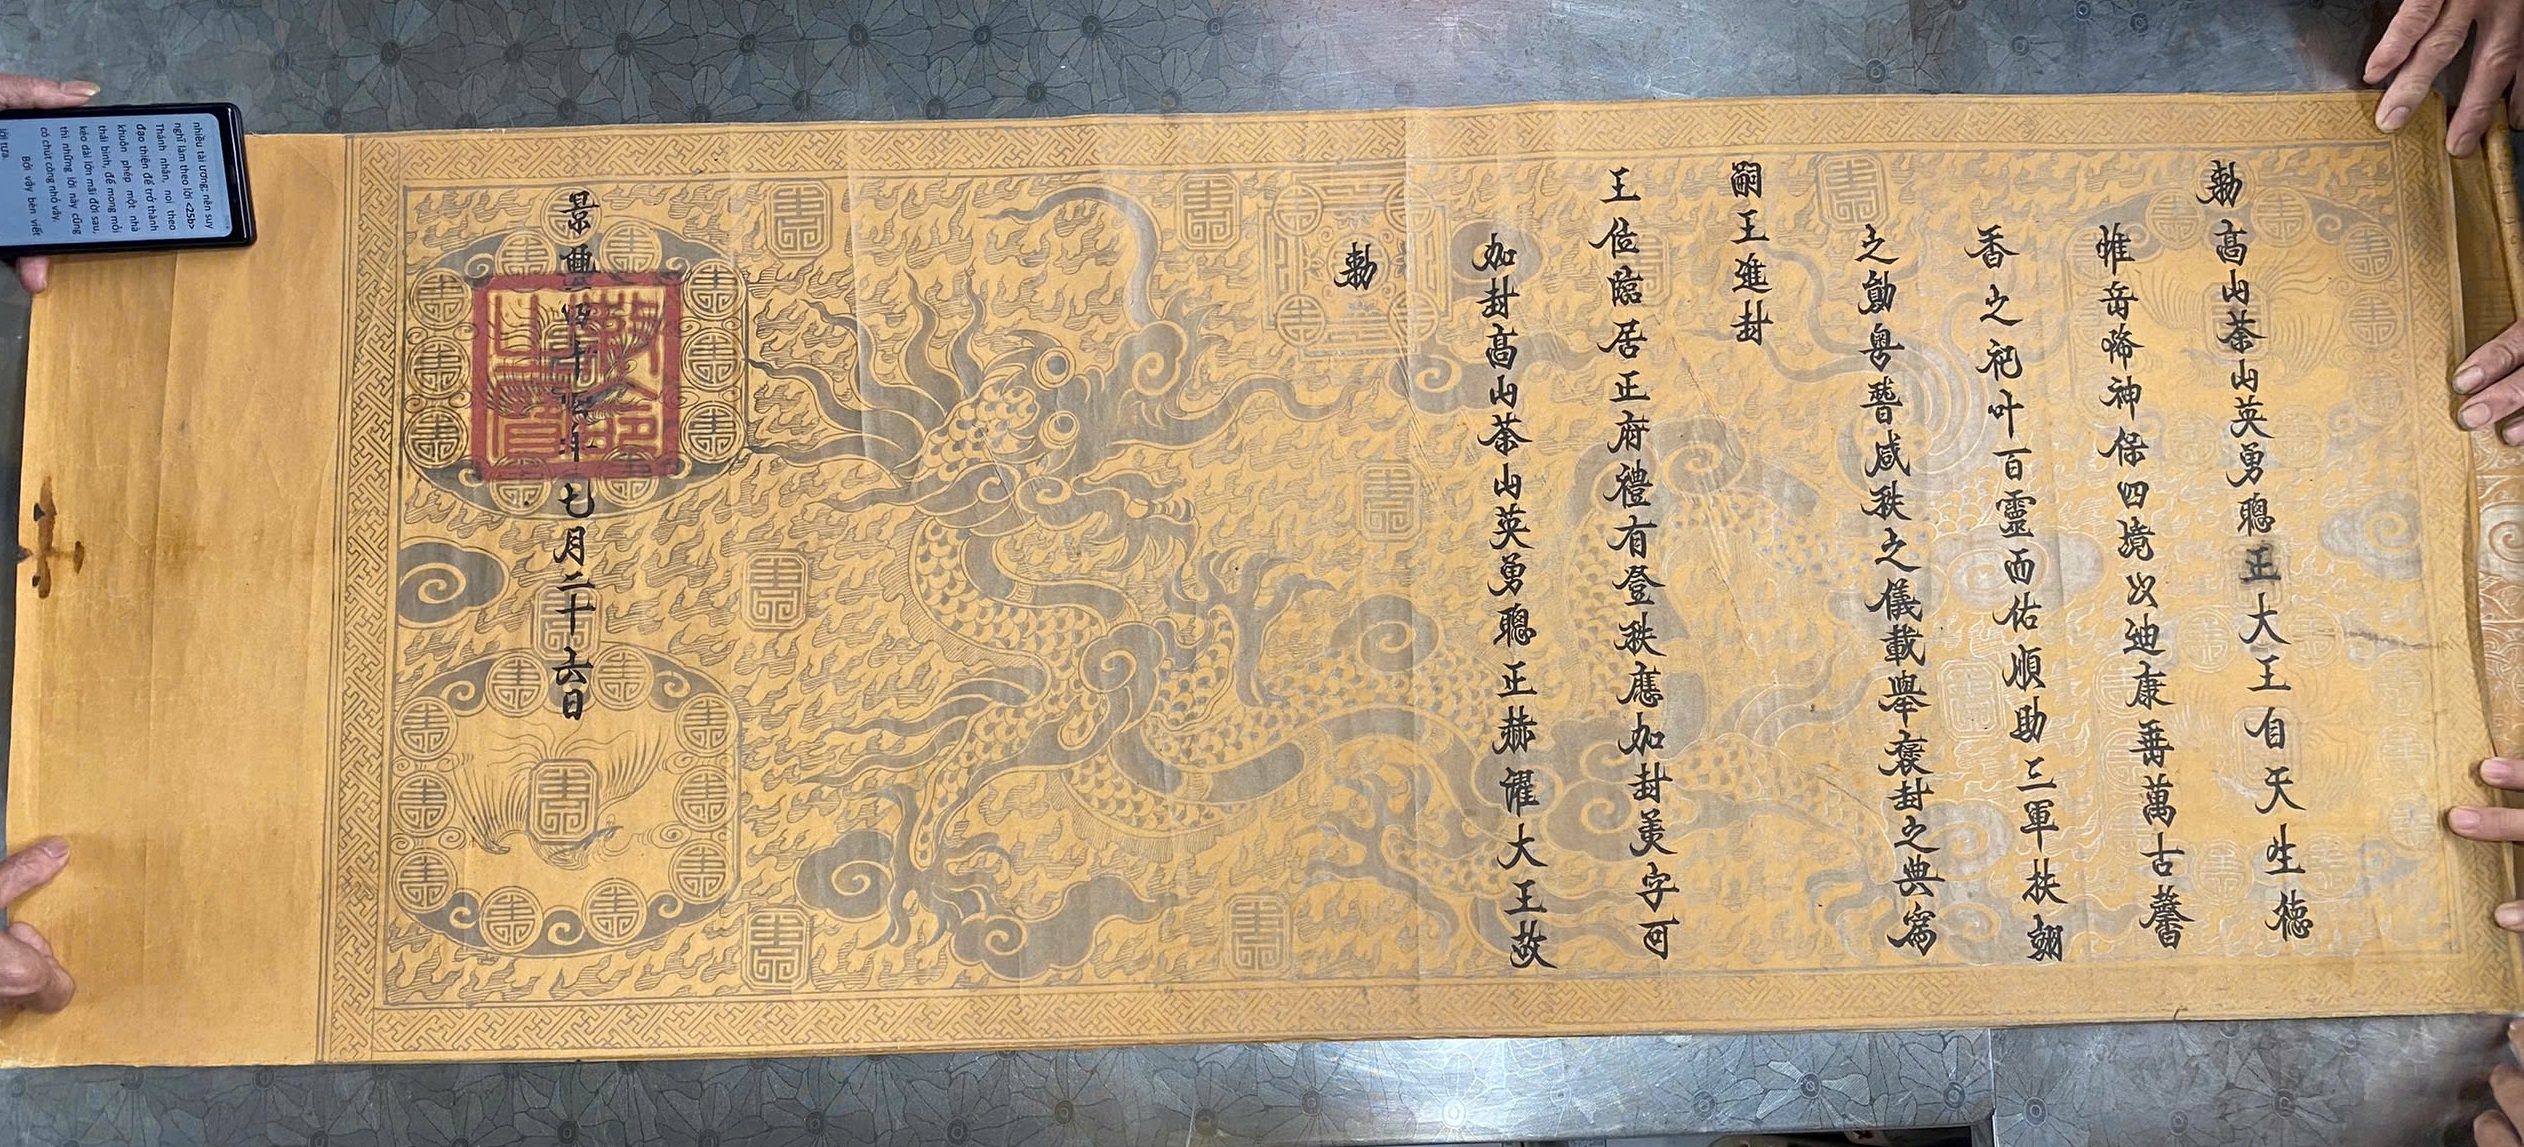 勅高山茶山英勇聰正大王自天生德
惟岳降神保四境以迪康善萬古馨
香之祀叶百靈而佑順助三軍扶翊
之勳粵稽咸秩之儀載舉褒封之典為
嗣王進封
王位臨居正府禮有登秩應加封美字可
加封高山茶山英勇聰正赫濯大王故
勅
景興四十四年七月二十六日
敕命之寶
nhiều tai ương; nên suy
nghĩ làm theo lời <25b>
Thánh nhân, noi theo
đạo thiện để trở thành
khuôn phép một nhà
thái bình, để mong mỏi
kéo dài lớn mãi đời sau,
thì những lời này cũng
có chút công nhỏ vậy.
Bởi vậy bèn viết
lời tựa.